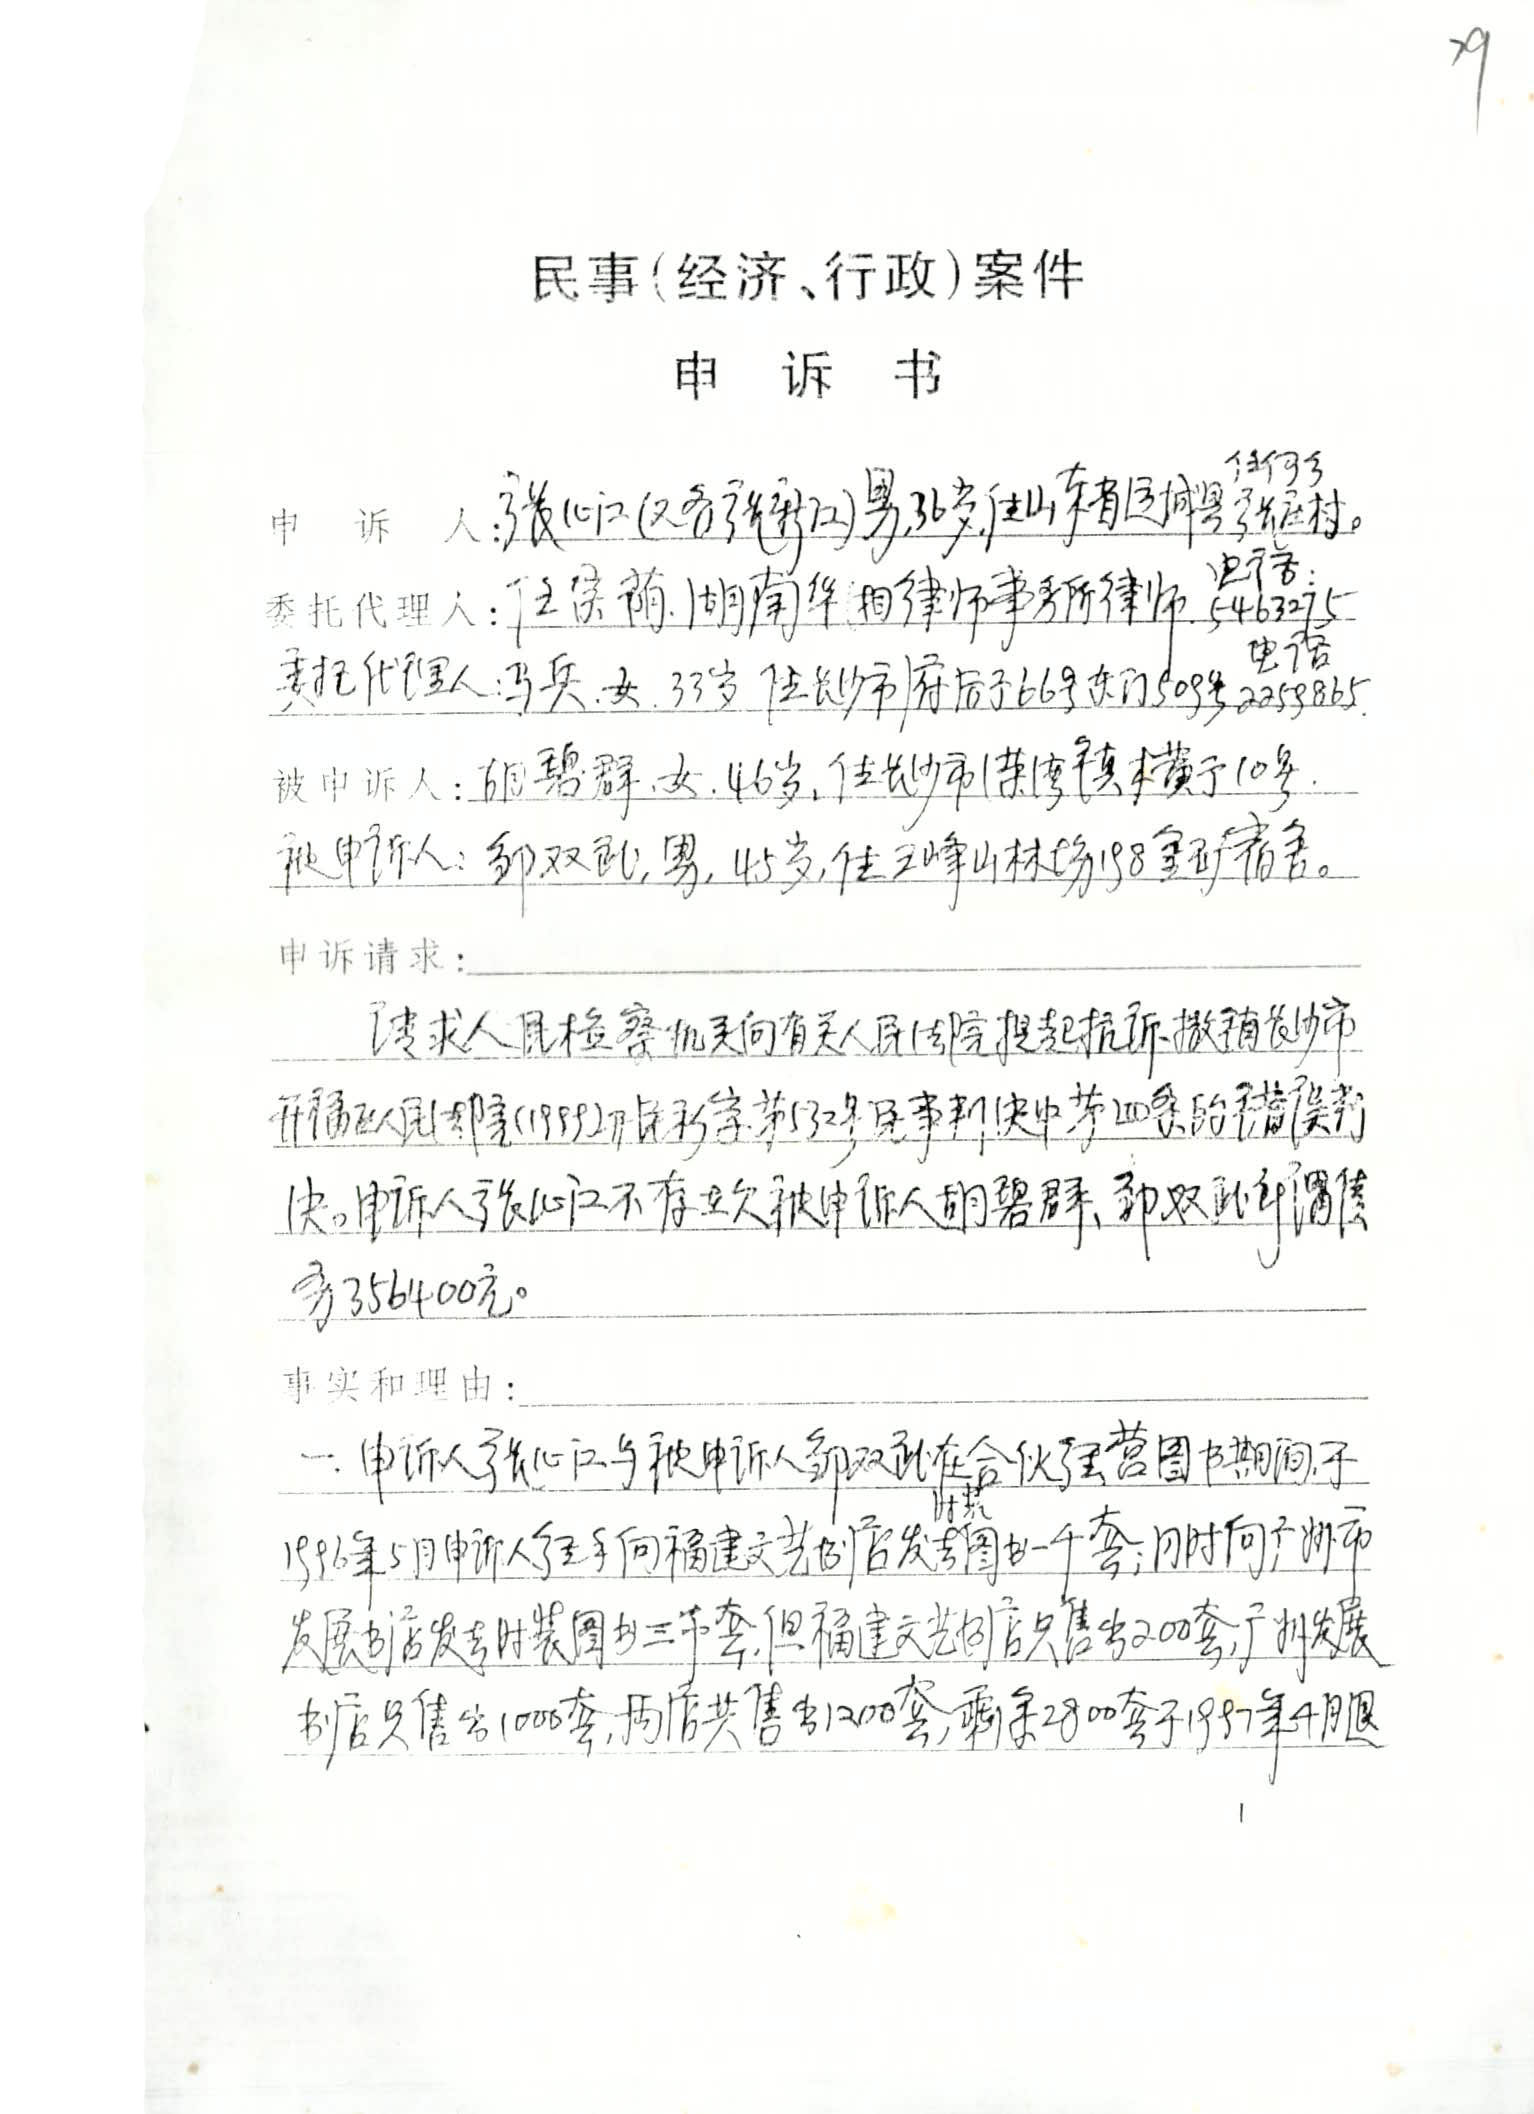 29
民事(经济、行政)案件
申诉书
住何乡
申诉人:张心江(又名张新江)男,36岁,住山东省县张庄村。
电话:
委托代理人:任,湖南华湘律师事务所律师.5463275
电话
委托代理人:冯兵.女.33岁 住长沙市府后街66号东门509号2259865.
被申诉人:胡碧群.女.46岁.住长沙市溁湾镇横街10号.
被申诉人:邹双,男,45岁,住五峰山林场198金矿宿舍。
申诉请求:
请求人民检察机关向有关人民法院提起抗诉.撤销长沙市
开福区人民法院(1999)开民初字第532号民事判决中第四条的错误判
决。申诉人张心江不存在欠被申诉人胡碧群、邹双债
务356400元。
事实和理由:
一.申诉人张心江与被申诉人邹双在合伙经营图书期间,于
时装
1996年5月申诉人经手向福建文艺书店发去图书一千套;同时向广州市
发展书店发去时装图书三千套,但福建文艺书店只售出200套,广州发展
书店只售出1000套,两店共售出1200套,剩余2800套于1997年4月退
1